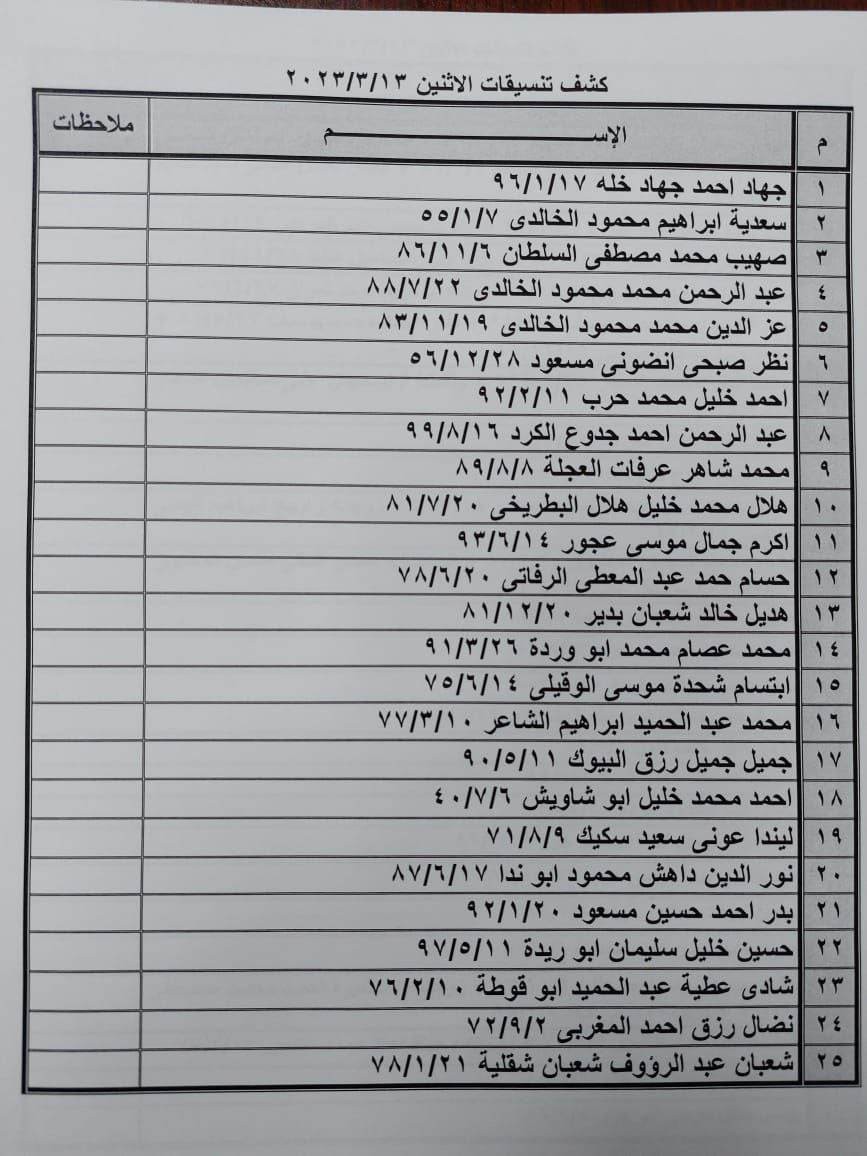 كشف تنسيقات الاثنين ٢٠٢٣/٣/١٣
م الإســـــــــــــــــــــــم ملاحظات
١ جهاد احمد جهاد خله ٩٦/١/١٧
٢ سعدية ابراهيم محمود الخالدى ٥٥/١/٧
٣ صهيب محمد مصطفى السلطان ٨٦/١١/٦
٤ عبد الرحمن محمد محمود الخالدى ٨٨/٧/٢٢
٥ عز الدين محمد محمود الخالدى ٨٣/١١/١٩
٦ نظر صبحى انضونى مسعود ٥٦/١٢/٢٨
٧ احمد خليل محمد حرب ٩٢/٢/١١
٨ عبد الرحمن احمد جدوع الكرد ٩٩/٨/١٦
٩ محمد شاهر عرفات العجلة ٨٩/٨/٨
١٠ هلال محمد خليل هلال البطريخى ٨١/٧/٢٠
١١ اكرم جمال موسى عجور ٩٣/٦/١٤
١٢ حسام حمد عبد المعطى الرفاتى ٧٨/٦/٢٠
١٣ هديل خالد شعبان بدير ٨١/١٢/٢٠
١٤ محمد عصام محمد ابو وردة ٩١/٣/٢٦
١٥ ابتسام شحدة موسى الوقيلى ٧٥/٦/١٤
١٦ محمد عبد الحميد ابراهيم الشاعر ٧٧/٣/١٠
١٧ جميل جميل رزق البيوك ٩٠/٥/١١
١٨ احمد محمد خليل ابو شاويش ٤٠/٧/٦
١٩ ليندا عونى سعيد سكيك ٧١/٨/٩
٢٠ نور الدين داهش محمود ابو ندا ٨٧/٦/١٧
٢١ بدر احمد حسين مسعود ٩٢/١/٢٠
٢٢ حسين خليل سليمان ابو ريدة ٩٧/٥/١١
٢٣ شادى عطية عبد الحميد ابو قوطة ٧٦/٢/١٠
٢٤ نضال رزق احمد المغربى ٧٢/٩/٢
٢٥ شعبان عبد الرؤوف شعبان شقلية ٧٨/١/٢١